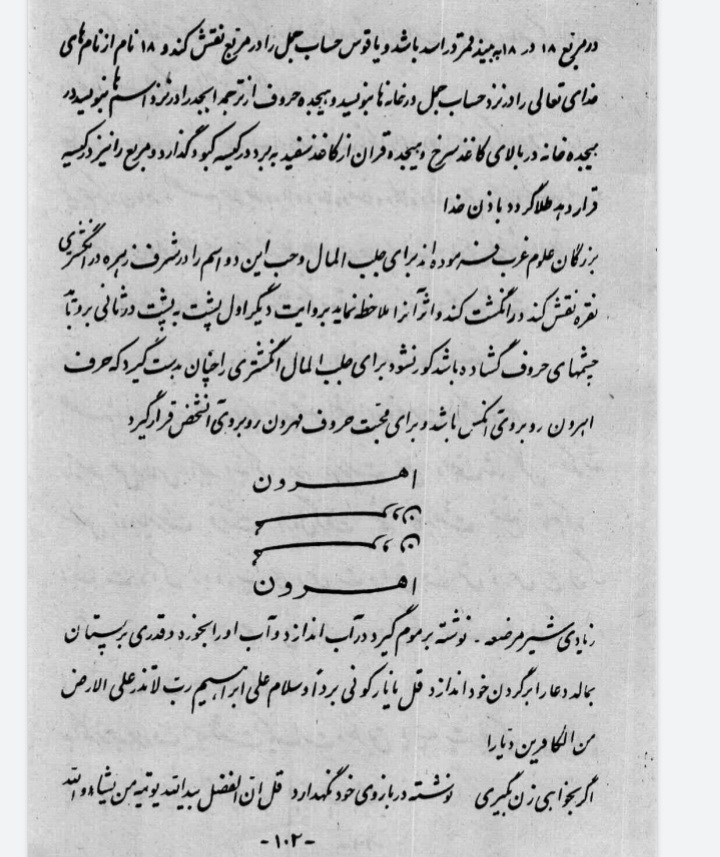 در مربع ۱۸ در ۱۸ به بیند قمر در اسد باشد و یا قوس حساب جمل را در مربع نقش کند و ۱۸ نام از نام های
خدای تعالی را در نزد حساب جمل در خانه ها بنویسد و هیجده حروف از ترجمه ابجد را در نزد اسم ها بنویسد در
هیجده خانه در بالای کاغذ سرخ و هیجده قران از کاغذ سفید به برد در کیسه کبود گذارد و مربع را نیز در کیسه
قرار دهد طلا گردد باذن خدا
بزرگان علوم غرب فرموده اند برای جلب المال و حب این دو اسم را در شرف زهره در انگشتری
نقره نقش کند در انگشت کند و اثر آنرا ملاحظه نماید بروایت دیگر اول پشت به پشت در ثانی برو تابد
چشمهای حروف گشاده باشد کور نشود برای جلب المال انگشتری را چنان بدست گیرد که حرف
اهرون روبروی انکس باشد و برای محبت حروف مهرون روبروی آنشخص قرار گیرد
اهرون
اهرون
زیادی شیر مرضعه - نوشته بر موم گیرد در آب اندازد و آب او را بخورد و قدری بر پستان
بمالد دعا را بر گردن خود اندازد قل یا نار کونی بردا و سلام علی ابراهیم رب لا تذر علی الارض
من الکافرین دیارا
اگر بخواهی زن بگیری نوشته در بازوی خود نگهدارد قل ان الفضل بید الله یوتیه من یشاء والله
-۱۰۲-